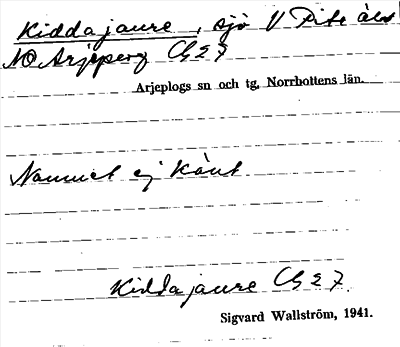 Kiddajaure, sjö V Pite älv
NO Arjeperg Cg 27
Arjeplogs sn och tg, Norrbottens län.
Namnet ej känt
Kiddajaure Cg 27.
Sigvard Wallström, 1941.